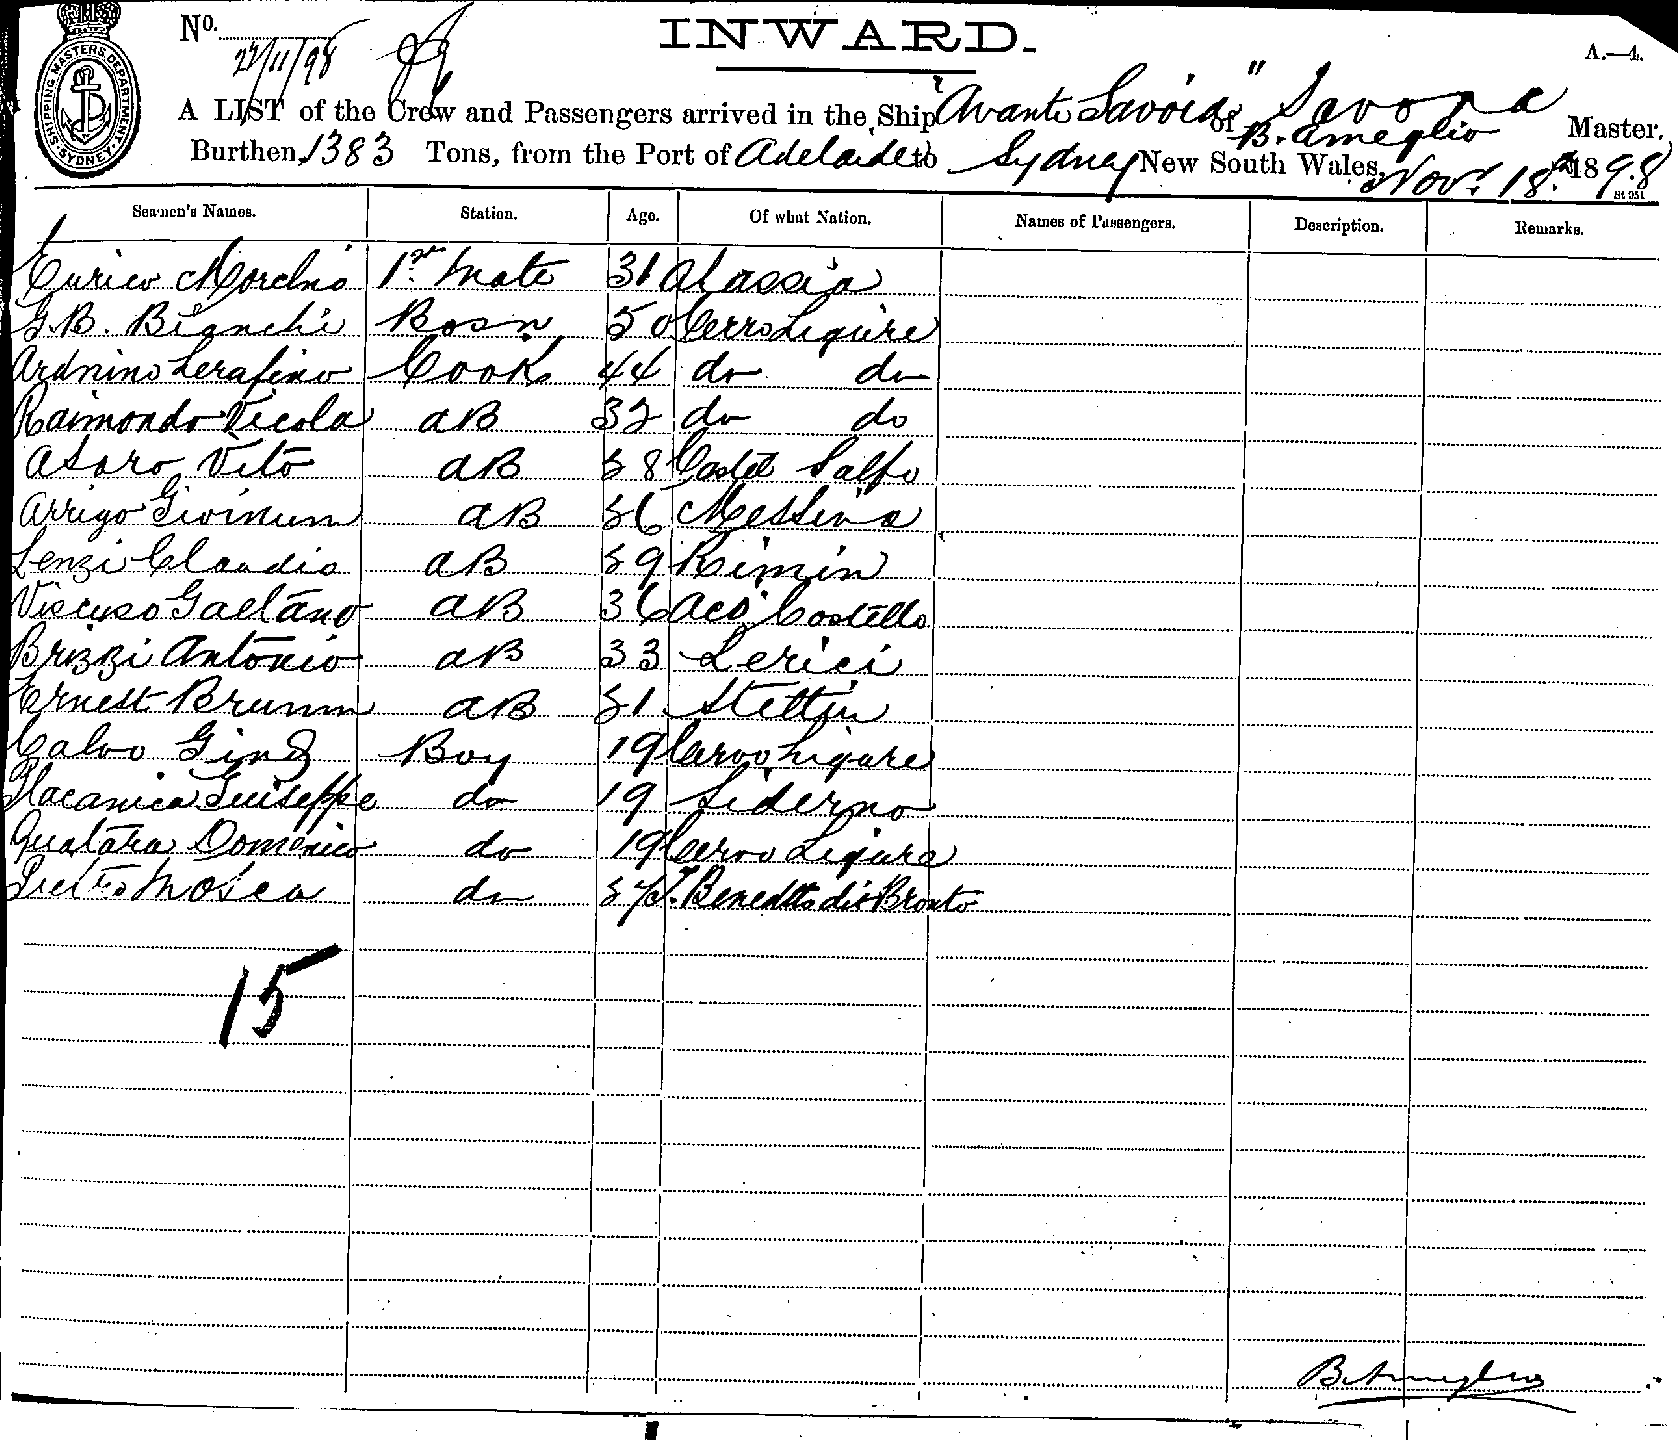 No. 22/11/98
INWARD.
A.—4.
SHIPPING MASTERS DEPARTMENT SYDNEY
A LIST of the Crew and Passengers arrived in the Ship "Avanti Savoia" of Savona
B. Ameglio Master,
Burthen, 1383 Tons, from the Port of Adelaide to Sydney New South Wales, Nov. 18th 1898
Seamen's Names. Station. Age. Of what Nation. Names of Passengers. Description. Remarks.
Enrico Morchio 1st Mate 31 Alassio
G.B. Bianchi Bosn 50 Cervo Ligure
Serafino Cook 44 do do
Raimondo Nicola AB 32 do do
Asaro Vito AB 38 Castel
Arrigo AB 36 Messina
Lenzi Claudio AB 39 Rimin
Viscuso Gaetano AB 36 Aci Costello
Brizzi Antonio AB 33 Lerici
Ernest Brumm AB 31 Stettin
Calvo Gino Boy 19 Cervo Ligure
Macanica Guiseppe do 19 Siderno
Domenico do 19 Cervo Ligure
Pietro Mosca do Benedetto
15
B. Ameglio